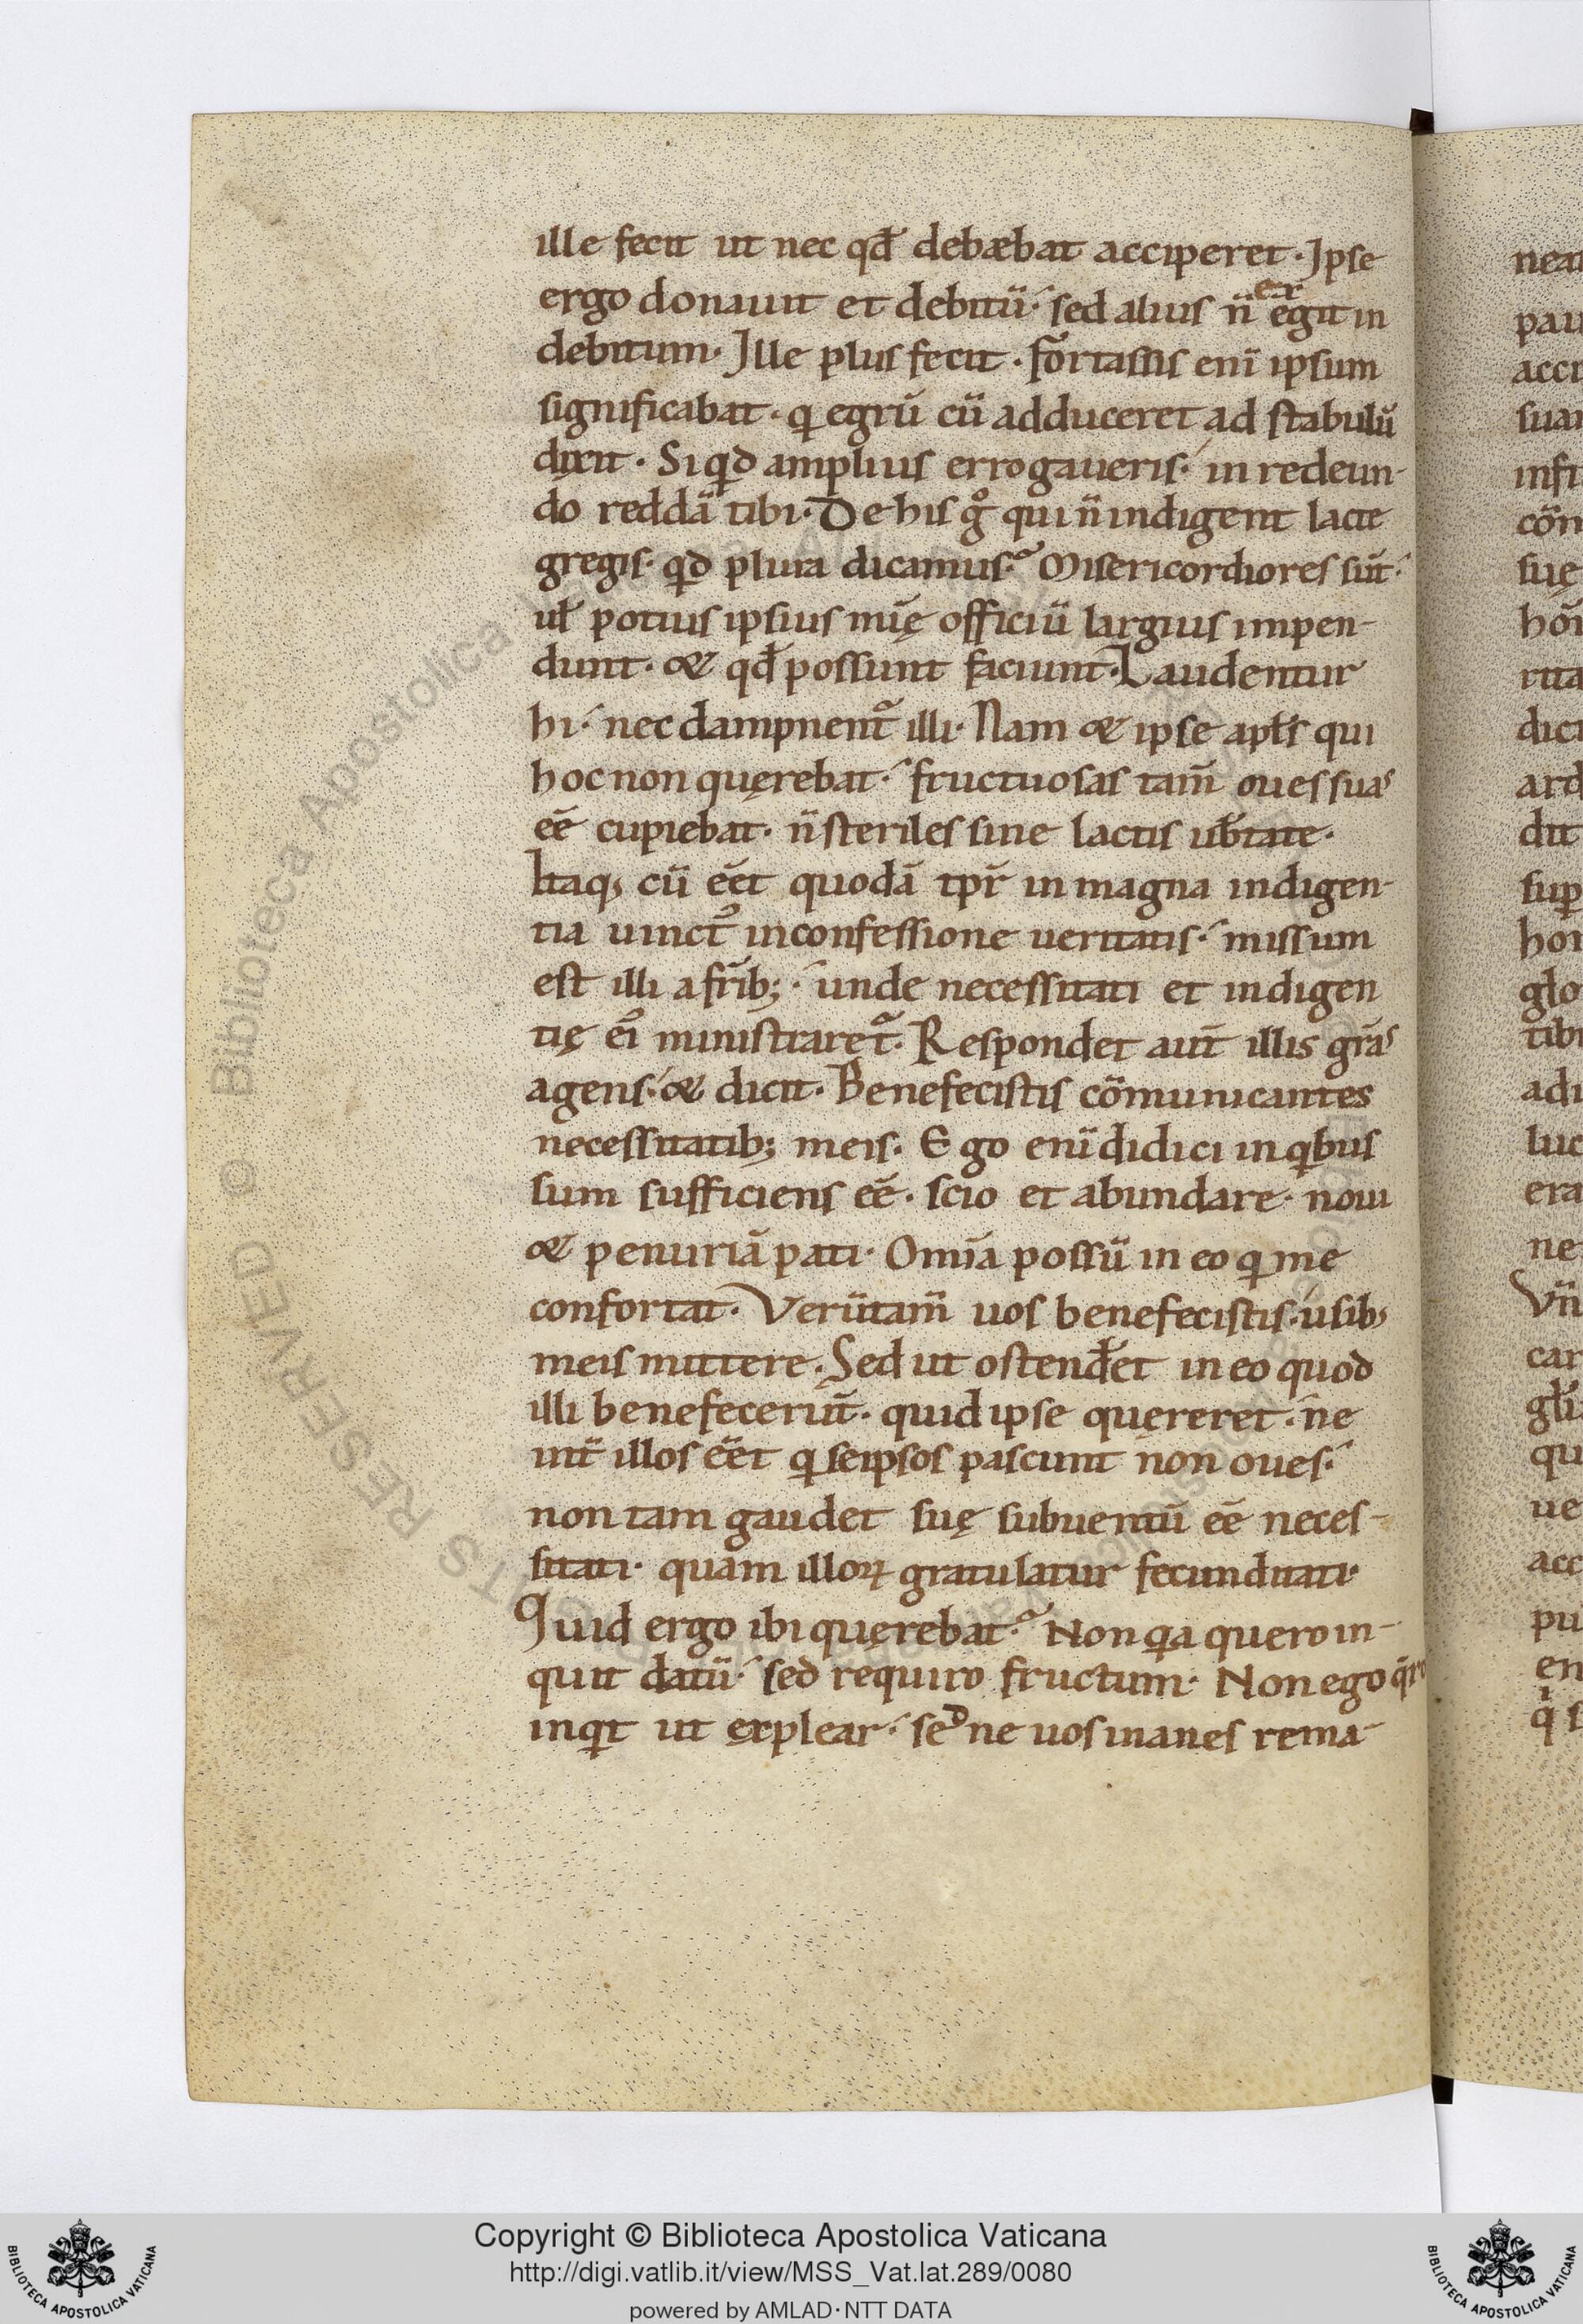 ille fecit ut nec qđ debæbat acciperet · Ipse
ergo donauit et debitū · sed alius n̄ ex egit in
debitum · Ille plus fecit · fortassis enī ipsum
significabat · qi egrū cū adduceret ad stabulū
dixit · Si qid amplius errogaueris · in redeun-
do reddā tibi · De his gͦ qui n̄ indigent lacte
gregis · qid plura dicamus · Misericordiores sūt ·
ul̄ potius ipsius mīę officiū largius impen-
dunt · & qđ possunt faciunt · Laudentur
hi · nec dampnent᷑ illi · Nam & ipse apl̄s qui
hoc non quęrebat · fructuosas tam̄ oues suas
eē cupiebat · n̄ steriles sine lactis ub̄tate ·
Itaq; cū eēt quodā tp̄r in magna indigen-
tia uinct᾽ in confessione ueritatis · missum
est illi a fr̄ib; · unde necessitati et indigen
tię ei᾽ ministraret᷑ · Respondet aut̄ illis grās
agens · & dicit · Benefecistis cōmunicantes
necessitatib; meis · Ego enī didici in qibus
sum sufficiens eē · scio et abundare · noui
& penuriā pati · Omīa possū in eo qi me
confortat · Verūtam̄ uos benefecistis · usib;
meis mittere · Sed ut ostend̄et in eo quod
illi benefecerūt · quid ipse quęreret · ne
int̄ illos eēt qi seipsos pascunt non oues ·
non tam gaudet suę subuentū eē neces-
sitati · quam illoꝝ gratulatur fecunditati ·
Quid ergo ibi quęrebat · Non qia quero in-
quit datū · sed requiro fructum · Non ego q̄ro
inqit ut explear · sed ne uos inanes rema-
nea
pau
acci
sua
infi
cōm
suę
hōi
rita
dici
ard
dit
sup
hon
glo
tibi
adi
luc
era
ne
Vn̄
car
gl̄i
qu
ue
acc
pu
en
qi s
Biblioteca Apostolica Vaticana
© Biblioteca Apostolica
RESERVED
Copyright © Biblioteca Apostolica Vaticana
http://digi.vatlib.it/view/MSS_Vat.lat.289/0080
powered by AMLAD · NTT DATA
BIBLIOTECA APOSTOLICA VATICANA
BIBLIOTECA APOSTOLICA VATICANA